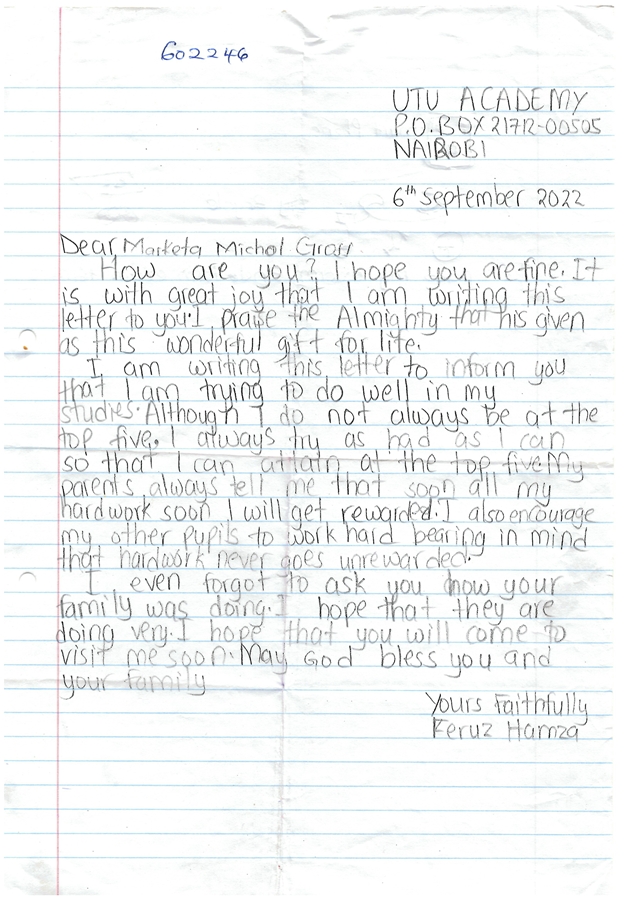 602246
UTU ACADEMY
P.O. BOX 21712-00505
NAIROBI
6th September 2022
Dear Marketa Michol Graff
How are you? I hope you are fine. It
is with great joy that I am writing this
letter to you. I praise the Almighty that his given
as this wonderful gift for life.
I am writing this letter to inform you
that I am trying to do well in my
studies. Although I do not always be at the
top five, I always try as had as I can
so that I can attain at the top five My
parents always tell me that soon all my
hardwork soon I will get rewarded. I also encourage
my other pupils to work hard bearing in mind
that hardwork never goes unrewarded.
I even forgot to ask you how your
family was doing. I hope that they are
doing very. I hope that you will come to
visit me soon. May God bless you and
your family
Yours Faithfully
Feruz Hamza